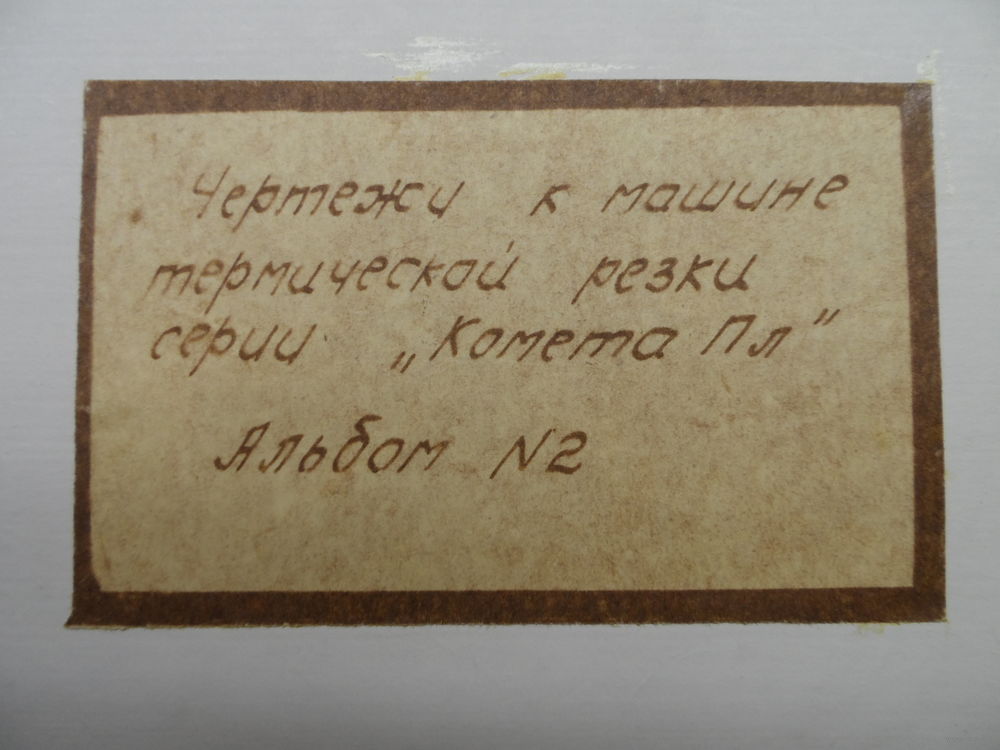 Чертежи к машине
термической резки
серии „Комета Пл”
Альбом N2